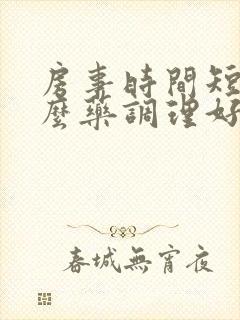 房事時間短
麼藥調理好
春城無宵夜